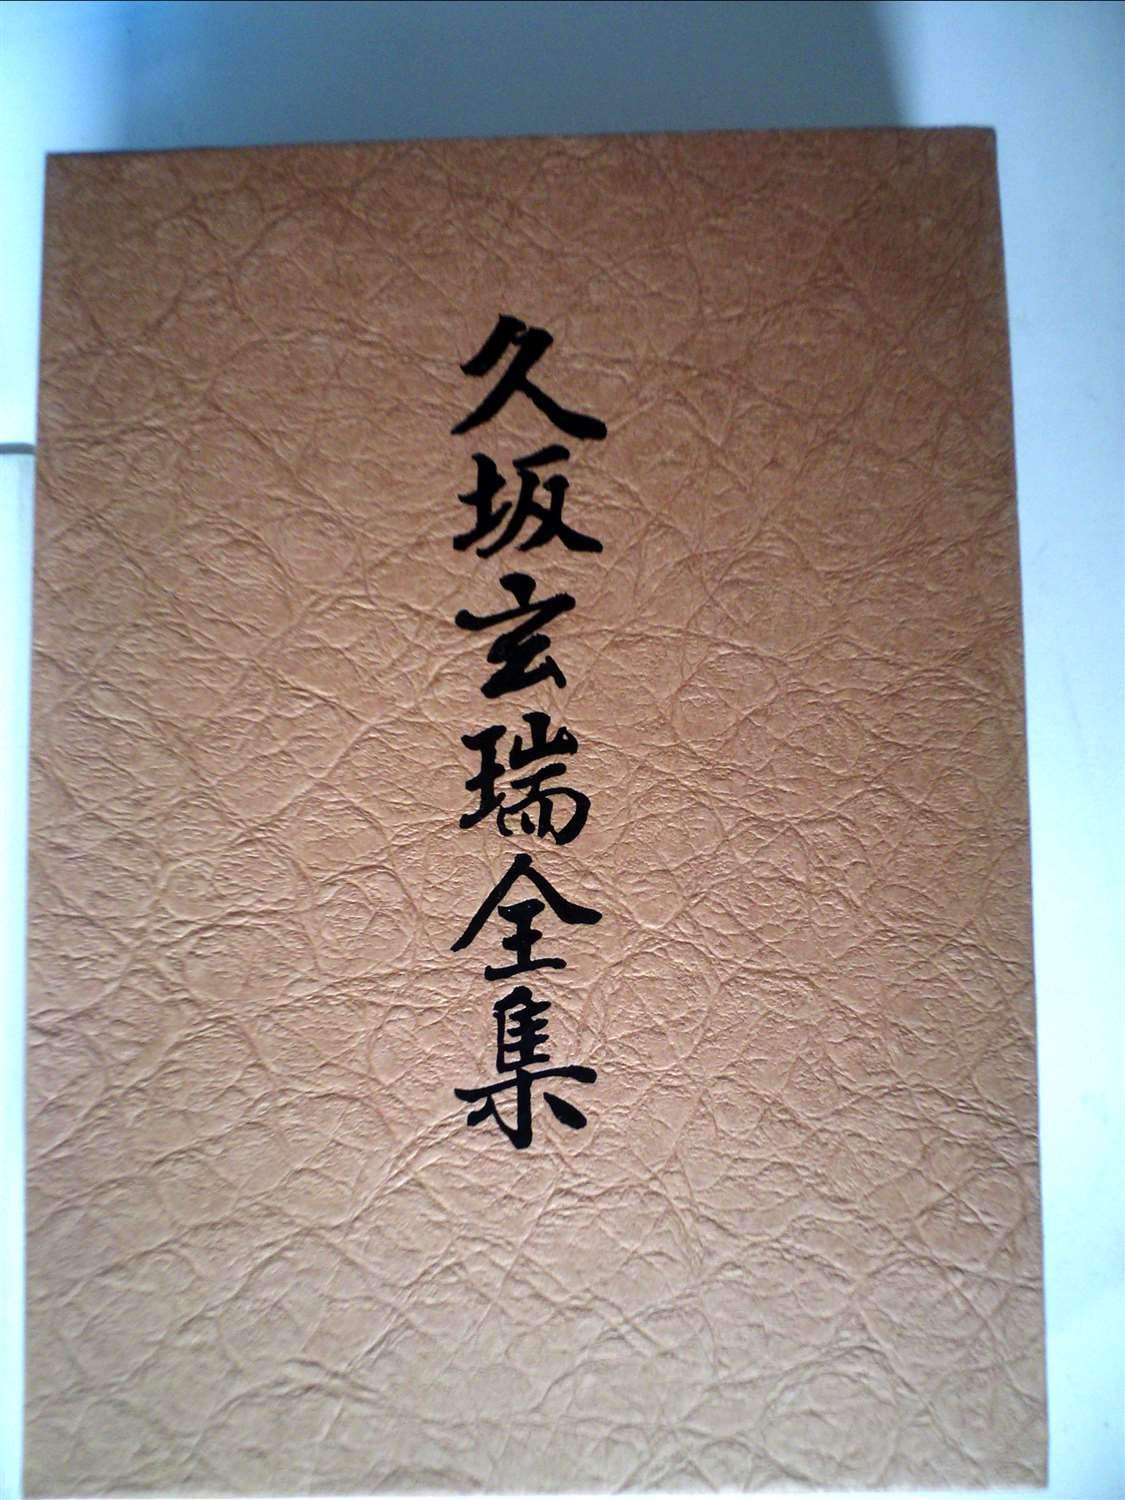 久坂玄瑞全集